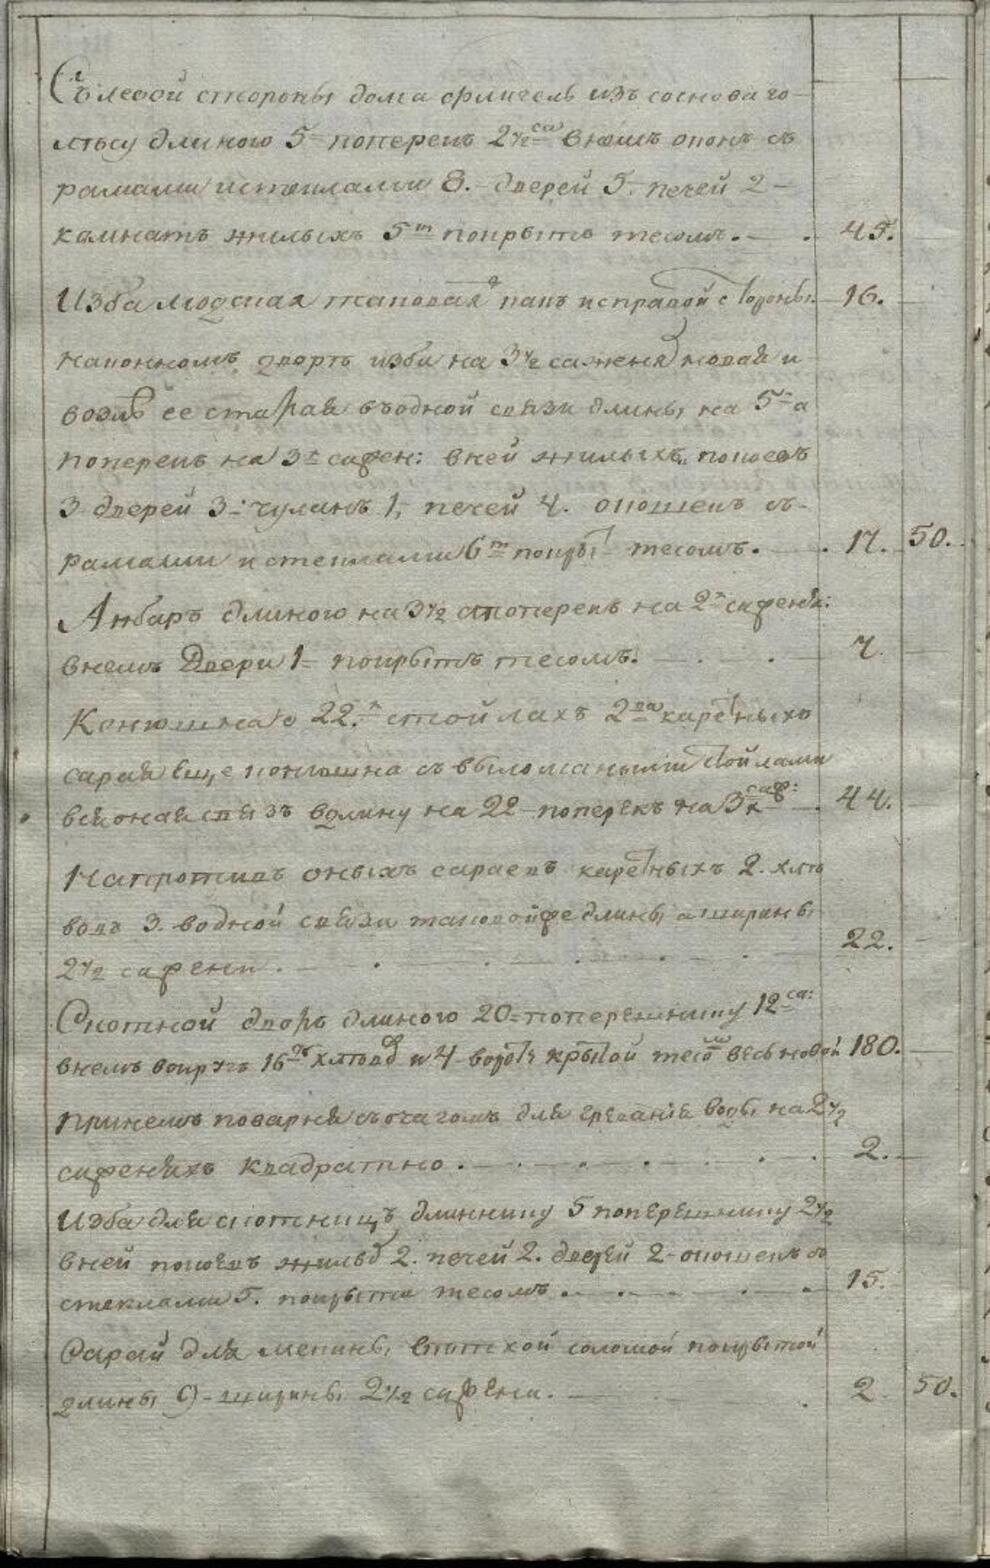 Съ левой стороны дома флигель изъ сосноваго
лѣсу длиною 5 поперегъ 2 1/2 са в немъ оконъ съ
рамами и стеклами 8. дверей 5. печей 2
комнатъ жилыхъ 5т покрытъ тесомъ. 45.
Изба людская таковая какъ и с правой стороны. 16.
На конномъ дворѣ изба на 3 1/2 саженя новая и
возлѣ ее старая въ одной связи длины на 5 а
поперегъ на 3 сажен: в ней жилыхъ покоевъ
3 дверей 3 чуланъ 1, печей 4. окошекъ съ
рамами и стеклами 6т покрыт тесомъ. 17. 50.
Анбаръ длиною на 3 1/2 а поперегъ на 2 саженя:
в немъ Двери 1 покрытъ тесомъ. 7.
Конюшна о 22. стойлахъ 2ва каретныхъ
сарая еще конюшна съ выломаными стойлами
вся оная связь в длину на 22 поперекъ на 3 саж: 44.
Напротивъ оныхъ сараевъ каретныхъ 2. хлѣ
вовъ 3. в одной связи таковой же длины а ширины
2 1/2 сажени. 22.
Скотной дворъ длиною 20 поперешнику 12 са:
в немъ вокругъ 16 хлѣвов и 4 ворот крытой тесом весь новой 180.
При немъ поварня съ очагомъ для грѣвания воды на 2 1/2
саженяхъ квадратно. 2.
Изба для скотницъ длиннику 5 поперешнику 2 1/2
в ней покоевъ жилыхъ 2. печей 2. дверей 2 окошекъ со
стеклами 5. покрыта тесомъ. 15.
Сарай для мякины скотской соломой покрытой
длины 9 ширины 2 1/2 сажени. 2 50.